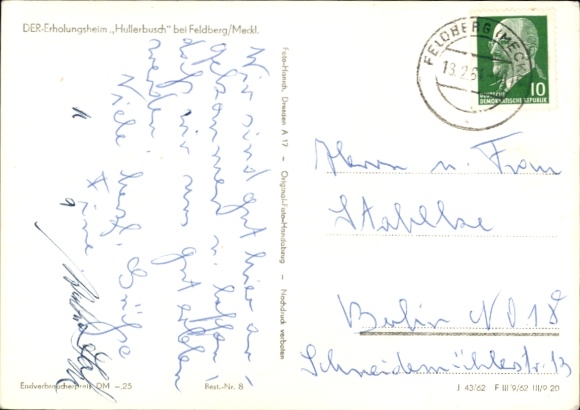 DER-Erholungsheim „Hullerbusch" bei Feldberg/Meckl.
Wir sind gut hier an-
gekommen u. hoffen,
daß wir uns gut erholen
werden.
Viele herzl. Grüße
Foto-Hanich, Dresden A 17 – Original-Foto-Handabzug – Nachdruck verboten
FELDBERG (MECKL)
10
DEUTSCHE
DEMOKRATISCHE REPUBLIK
Herrn u. Frau
Berlin NO 18
Schneidemühlerstr. 13
Endverbraucherpreis DM –.25
Best.-Nr. 8
J 43/62 F III 9/62 III/9 20